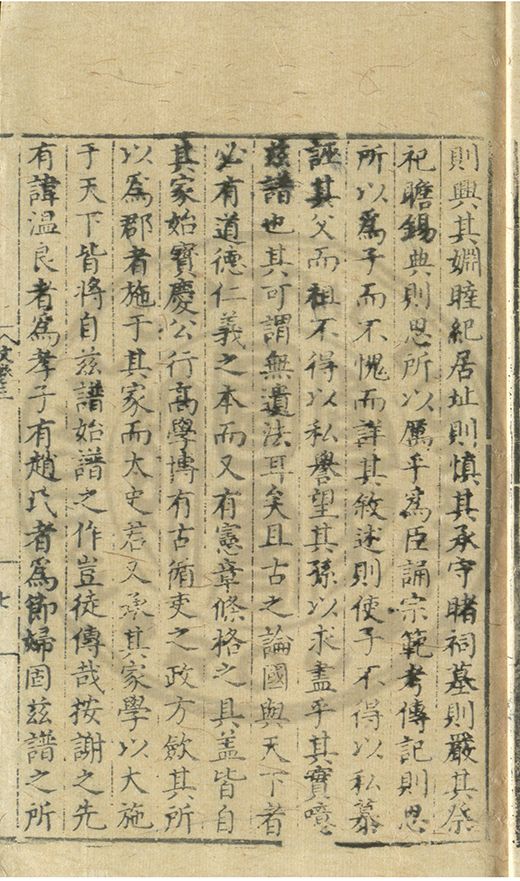 則興其婣睦紀居址則慎其承守睹祠墓則嚴其祭
祀瞻錫典則思所以厲乎為臣誦宗範考傳記則思
所以為子而不愧而詳其敘述則使子不得以私慕
誣其父而祖不得以私譽望其孫以求盡乎其實噫
茲譜也其可謂無遺法耳矣且古之論國與天下者
必有道德仁義之本而又有憲章條格之具盖皆自
其家始寳慶公行高學博有古循吏之政方歛其所
以為郡者施于其家而太史君又承其家學以大施
于天下皆將自茲譜始譜之作豈徒傳哉按謝之先
有諱温良者為孝子有趙氏者為節婦固茲譜之所
七